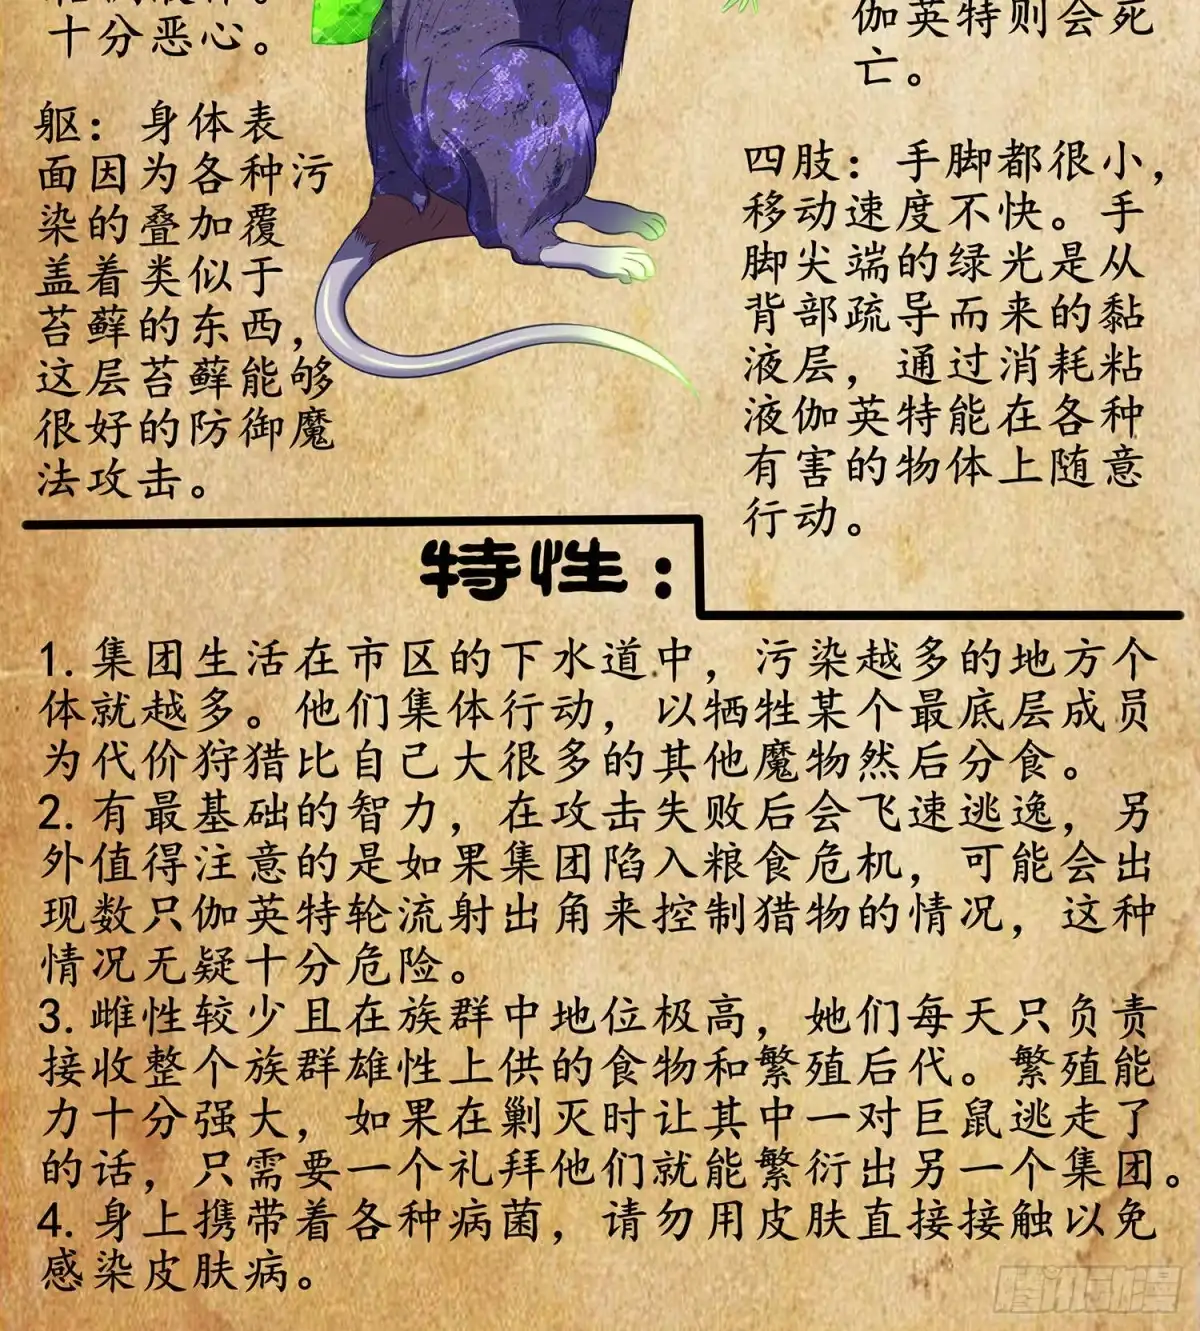 十分恶心。
伽英特则会死
亡。
躯：身体表
面因为各种污
染的叠加覆
盖着类似于
苔藓的东西，
这层苔藓能够
很好的防御魔
法攻击。
四肢：手脚都很小，
移动速度不快。手
脚尖端的绿光是从
背部疏导而来的黏
液层，通过消耗粘
液伽英特能在各种
有害的物体上随意
行动。
特性：
1. 集团生活在市区的下水道中，污染越多的地方个
体就越多。他们集体行动，以牺牲某个最底层成员
为代价狩猎比自己大很多的其他魔物然后分食。
2. 有最基础的智力，在攻击失败后会飞速逃逸，另
外值得注意的是如果集团陷入粮食危机，可能会出
现数只伽英特轮流射出角来控制猎物的情况，这种
情况无疑十分危险。
3. 雌性较少且在族群中地位极高，她们每天只负责
接收整个族群雄性上供的食物和繁殖后代。繁殖能
力十分强大，如果在剿灭时让其中一对巨鼠逃走了
的话，只需要一个礼拜他们就能繁衍出另一个集团。
4. 身上携带着各种病菌，请勿用皮肤直接接触以免
感染皮肤病。
腾讯动漫